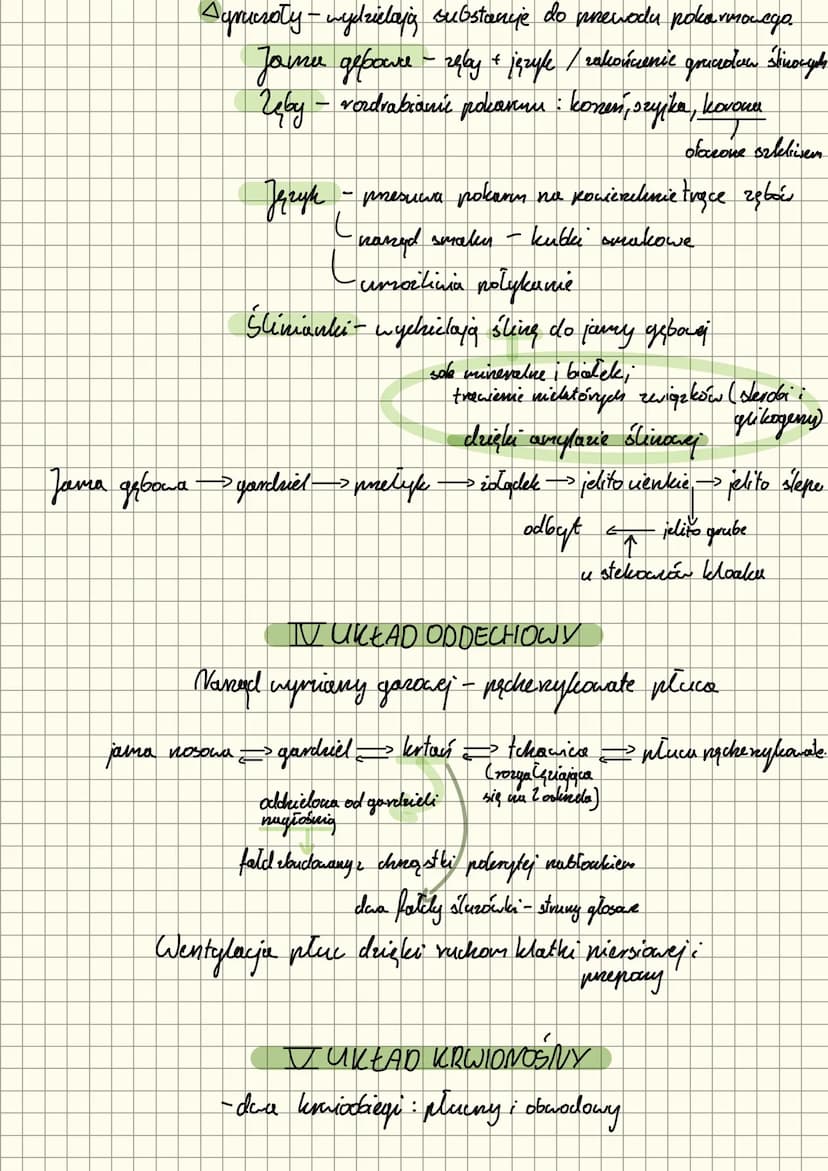 △gruczoły – wydzielają substancje do przewodu pokarmowego.
Jama gębowa – zęby + język / zakończenie gruczołów ślinowych
Zęby – rozdrabianie pokarmu : korzeń, szyjka, korona
otoczone szkliwem
Język – przesuwa pokarm na powierzchnie trące zębów
narząd smaku – kubki smakowe
umożliwia połykanie
Ślinianki – wydzielają ślinę do jamy gębowej
sole mineralne i białek;
trawienie niektórych związków (skrobi i
glikogenu)
dzięki amylazie ślinowej
Jama gębowa → gardziel → przełyk → żołądek → jelito cienkie → jelito ślepe
odbyt ← jelito grube
↑
u stekowców kloaka
IV UKŁAD ODDECHOWY
Narząd wymiany gazowej – pęcherzykowate płuca
jama nosowa ⇌ gardziel ⇌ krtań ⇌ tchawica ⇌ płuca pęcherzykowate
(rozgałęziająca
się na 2 oskrzela)
oddzielona od gardzieli
nagłośnią
fałd zbudowany z chrząstki pokrytej nabłonkiem
dwa fałdy śluzówki – struny głosowe
Wentylacja płuc dzięki ruchom klatki piersiowej i
przepony
V UKŁAD KRWIONOŚNY
- dwa krwiobiegi : płucny i obwodowy